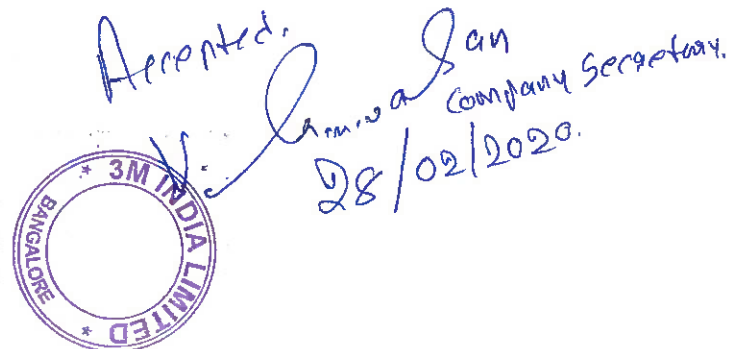 Accepted.
Company Secretary.
28/02/2020.
* 3M INDIA LIMITED *
BANGALORE